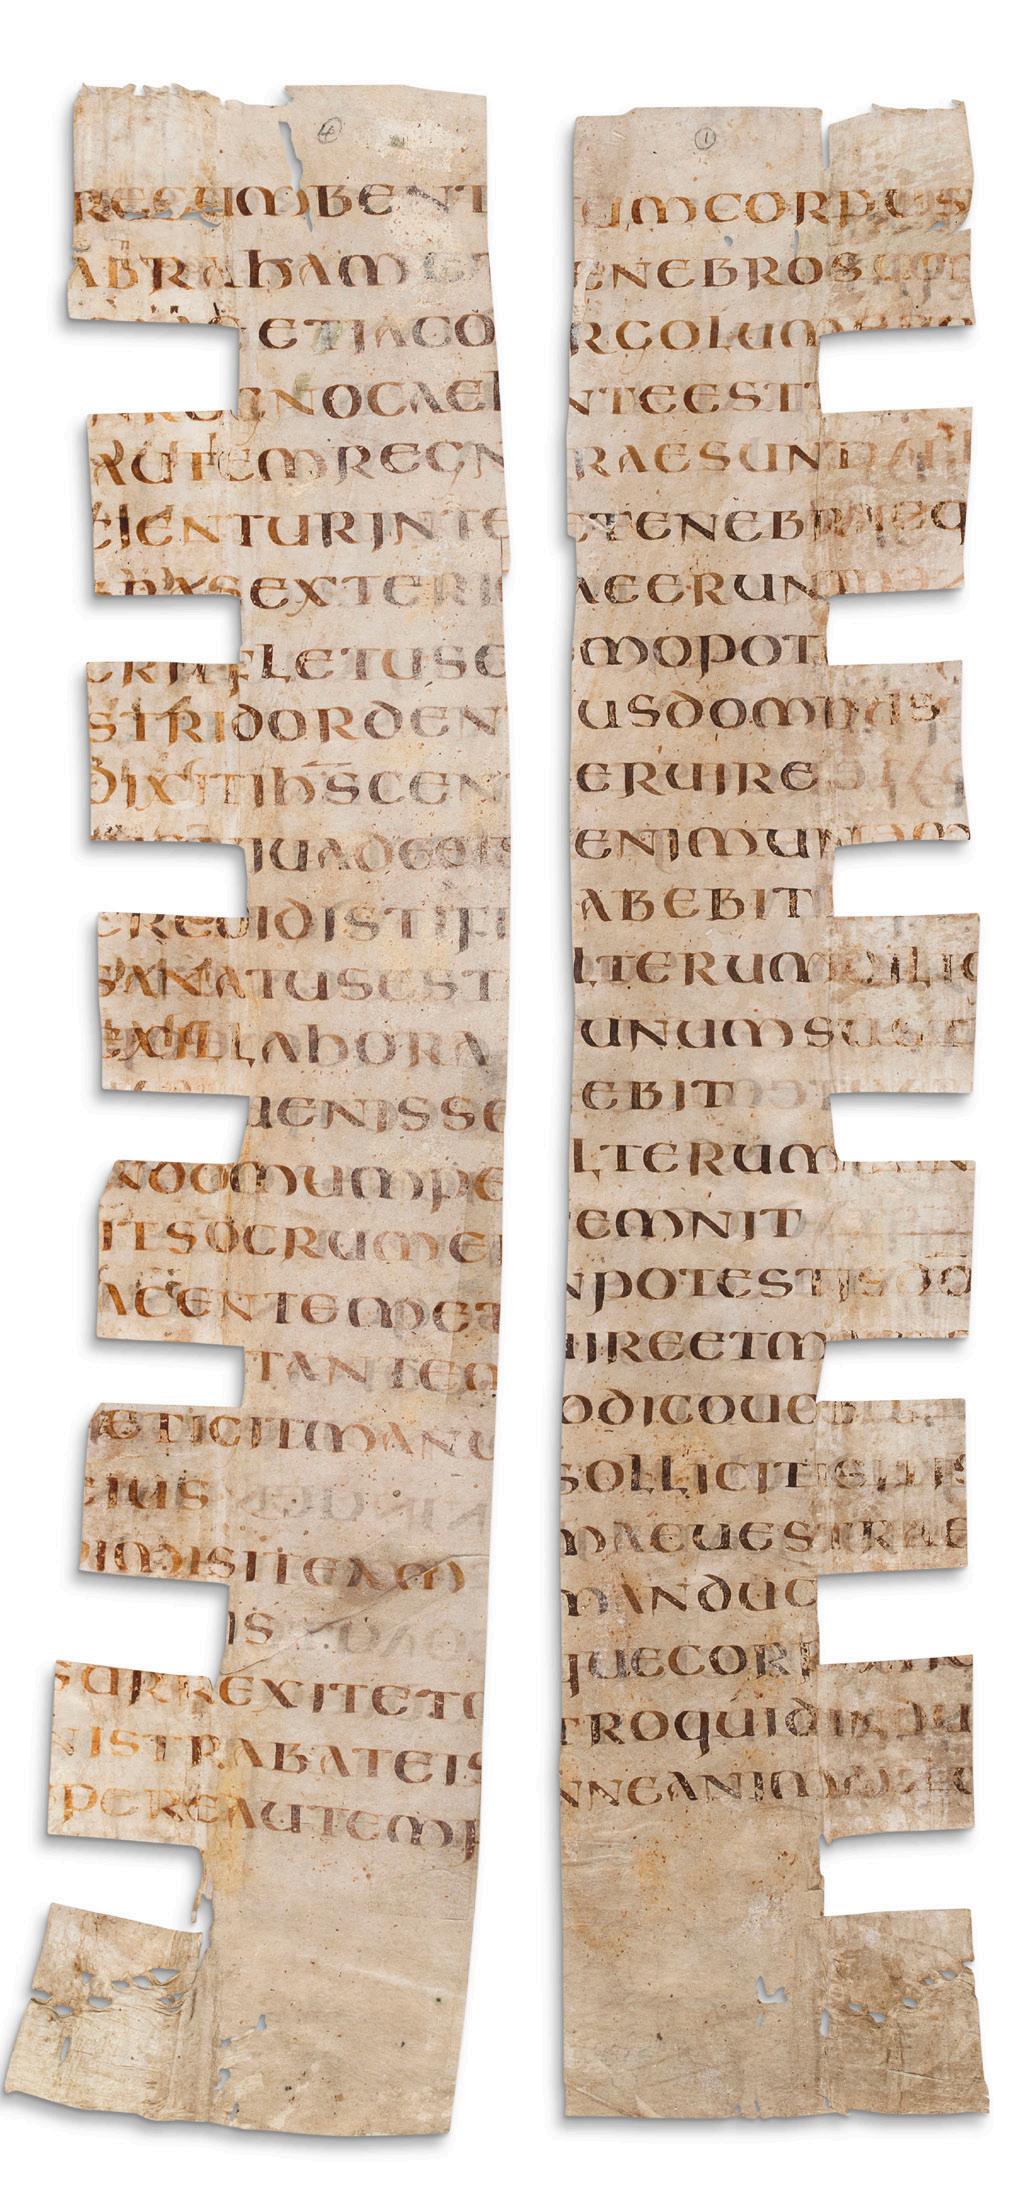 4
RECUMBENT
ABRAHAM ET
ETIACO
GNOCAEL
AUTEMREGN
CIENTURINTE
BRASEXTERI
ERITFLETUSE
STRIDORDEN
DIXITIHSCEN
CREDIDISTIFI
SANATUSEST
EXILLAHORA
UENISSE
NDOMUMPE
ITSOCRUMEI
ACENTEMET
TANTEM
ETTETIGITMANU
EIUS
DIMISITEAM
IS
SURREXITETO
NISTRABATEIS
PEREAUTEMF
1
UMCORPUS
ENEBROS
RGOLUM
NTEEST
RAESUNT
ETENEBRAEQ
AEERUNT
MOPOT
USDOMINIS
ERUIRE
ENIMUN
ABEBIT
LTERUMDILIG
UNUMSUST
EBIT
LTERUM
EMNIT
NPOTESTISDO
UIREETM
ODICOUO
SOLLICITI
MAEUESTRAE
MANDUC
QUECORP
TROQUID
NNEANIM